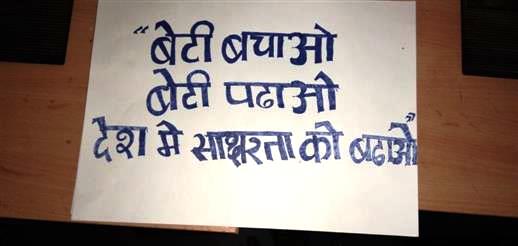 “बेटी बचाओ
बेटी पढाओ
देश मे साक्षरता को बढाओ”